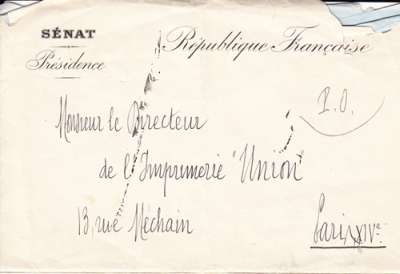 SÉNAT
Présidence
République Française
P.O.
Monsieur le Directeur
de l'Imprimerie "Union"
13, rue Méchain
Paris XIVe